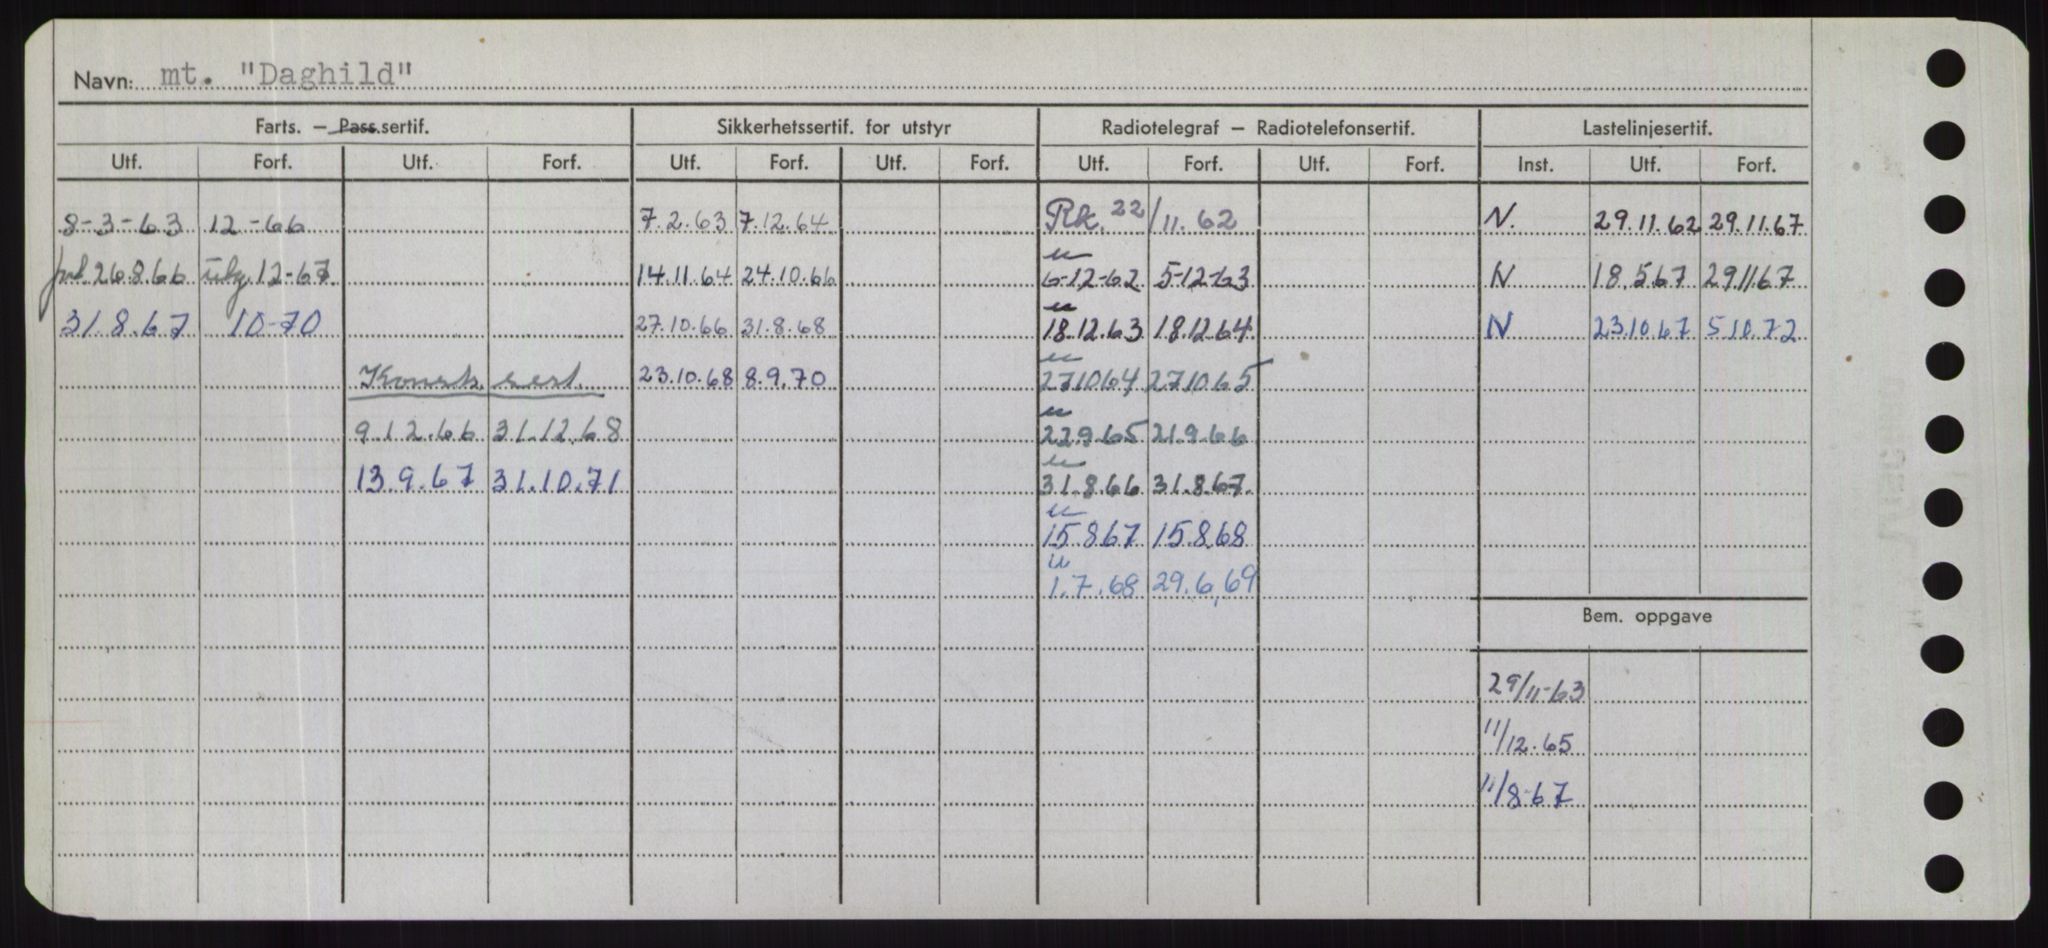 Navn: mt. "Daghild"
Farts. — Pass.sertif. Sikkerhetssertif. for utstyr Radiotelegraf — Radiotelefonsertif. Lastelinjesertif.
Utf. Forf. Utf. Forf. Utf. Forf. Utf. Forf. Utf. Forf. Utf. Forf. Inst. Utf. Forf.
8-3-63 12-66 7.2.63 7.12.64 Rk. 22/11.62 N. 29.11.62 29.11.67
26.8.66 utg. 12-67 14.11.64 24.10.66 " 6-12-62 5-12-63 N 18.5.67 29.11.67
31.8.67 10-70 27.10.66 31.8.68 " 18.12.63 18.12.64 N 23.10.67 5.10.72
Konstr. sert. 23.10.68 8.9.70 " 27.10.64 27.10.65
9.12.66 31.12.68 " 22.9.65 21.9.66
13.9.67 31.10.71 " 31.8.66 31.8.67.
" 15.8.67 15.8.68
" 1.7.68 29.6.69
Bem. oppgave
29/11-63
11/12.65
11/8-67